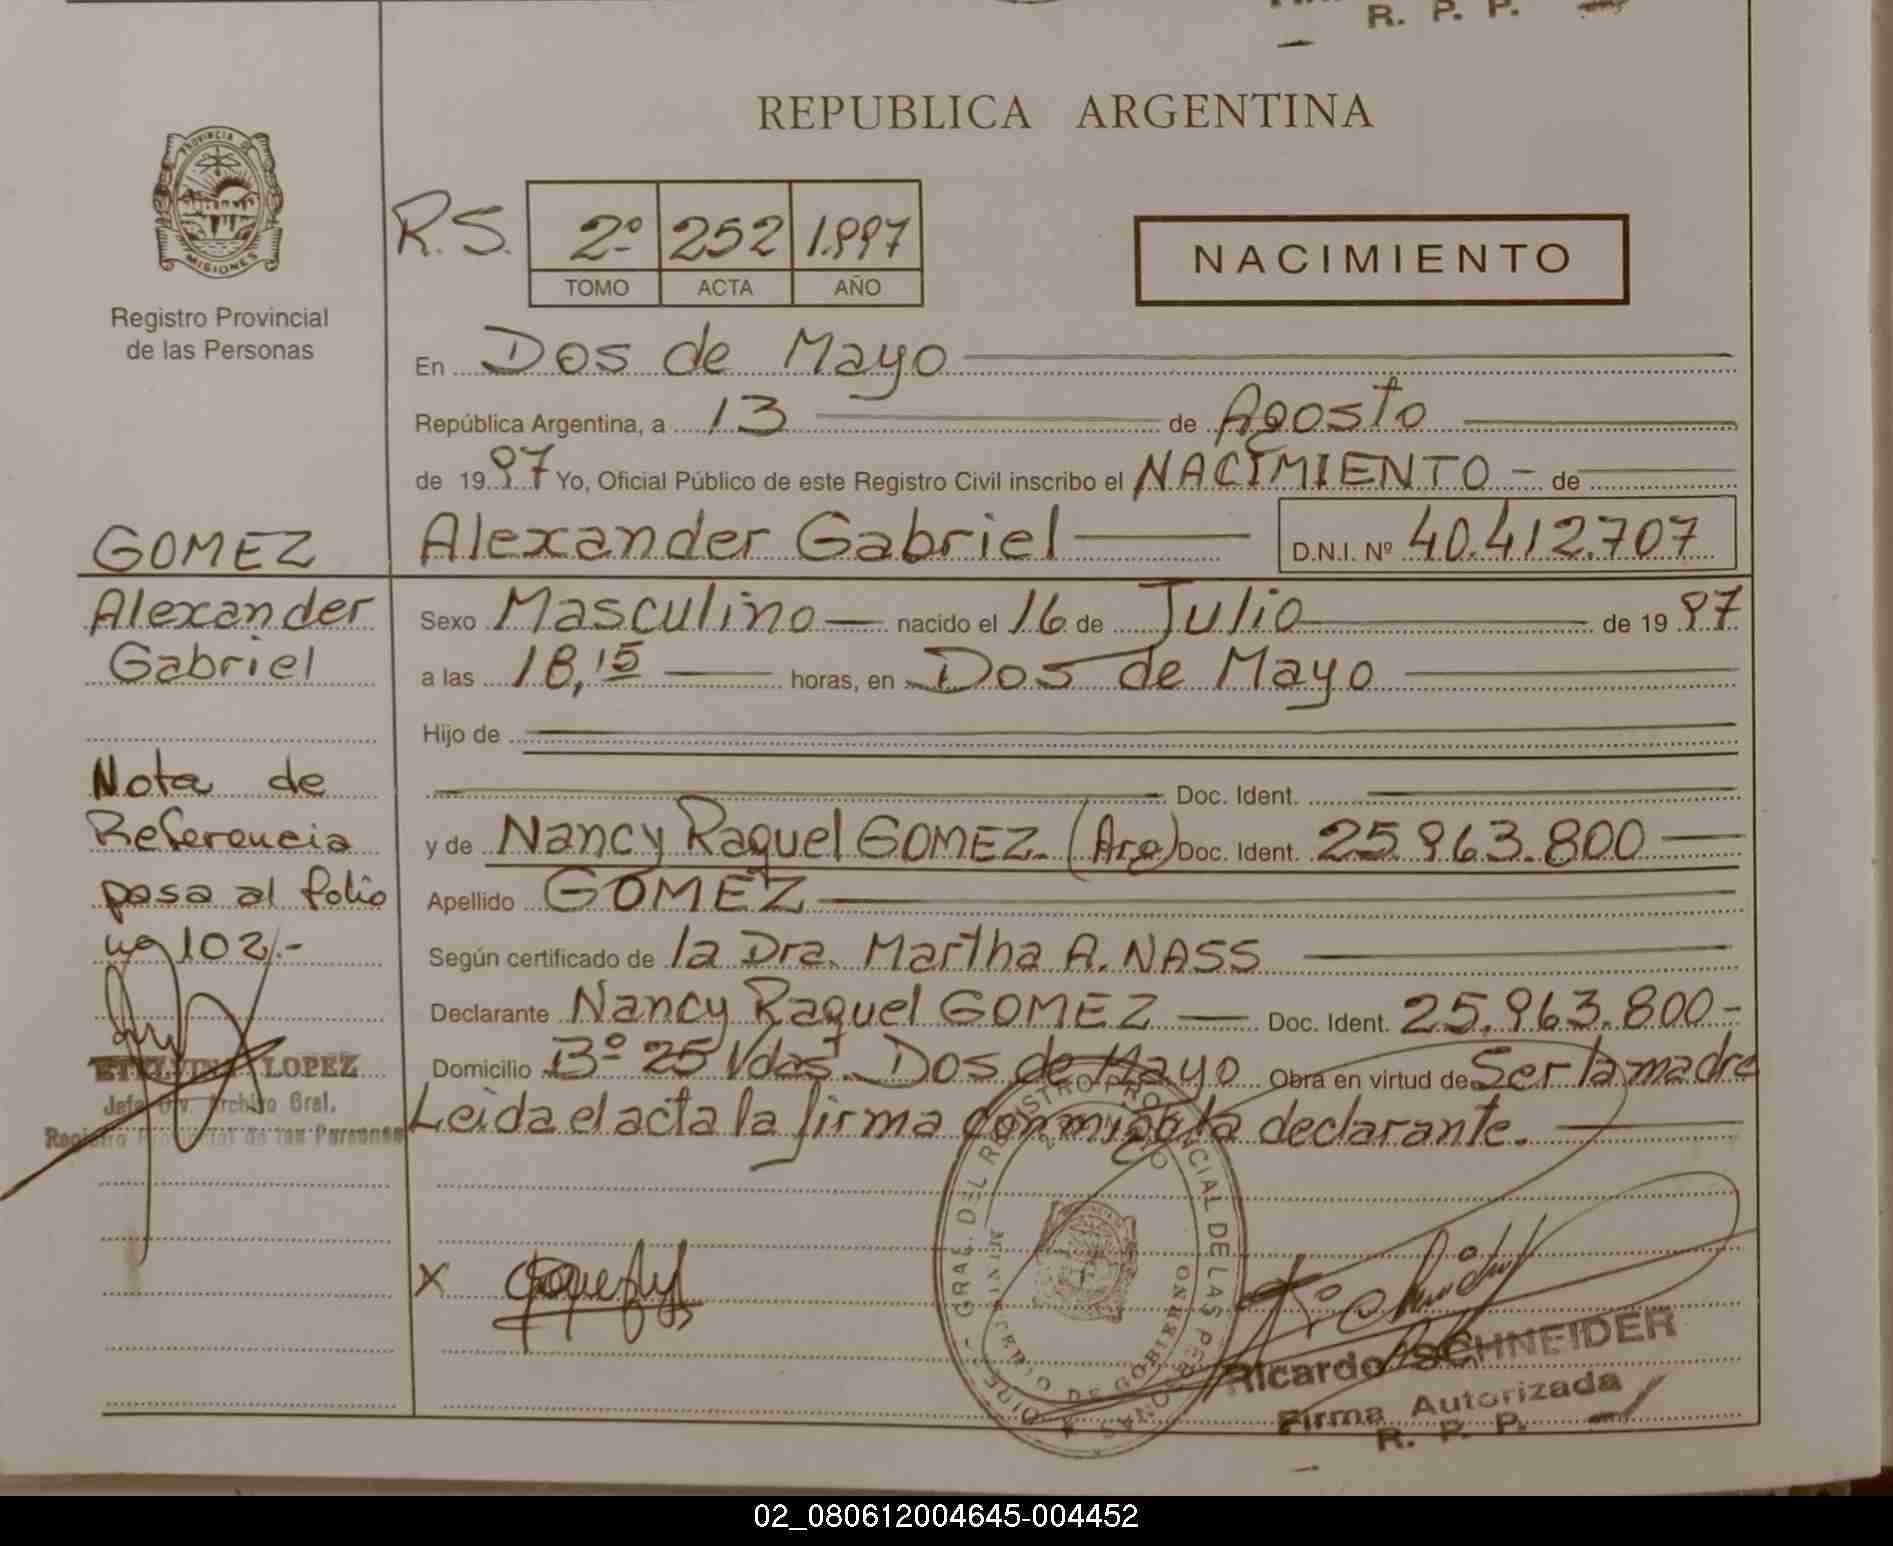 R. P. P.
REPUBLICA ARGENTINA
PROVINCIA DE
MISIONES
Registro Provincial
de las Personas
R.S.
2º 252 1.997
TOMO ACTA AÑO
NACIMIENTO
En Dos de Mayo
República Argentina, a 13 de Agosto
de 1997 Yo, Oficial Público de este Registro Civil inscribo el NACIMIENTO - de
Alexander Gabriel D.N.I. Nº 40.412.707
GOMEZ
Alexander
Gabriel
Sexo Masculino nacido el 16 de Julio de 1997
a las 18,15 horas, en Dos de Mayo
Hijo de
Doc. Ident.
y de Nancy Raquel GOMEZ. (Arg) Doc. Ident. 25.963.800
Apellido GOMEZ
Según certificado de la Dra. Martha A. NASS
Declarante Nancy Raquel GOMEZ Doc. Ident. 25.963.800-
Domicilio Bº 25 Vdas. Dos de Mayo Obra en virtud de Ser la madre
Leida el acta la firma conmigo la declarante.
Nota de
Referencia
pasa al folio
nº 102.-
LOPEZ
Jefa Div. Archivo Gral.
Registro Provincial de las Personas
X
DIREC. GRAL. DEL REGISTRO PROVINCIAL DE LAS PERSONAS
MINISTERIO DE GOBIERNO
Ricardo SCHNEIDER
Firma Autorizada
R. P. P.
02_080612004645-004452